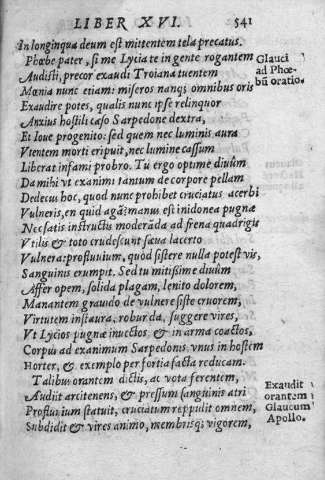 LIBER XVI. 541
In longinqua deum est mittentem tela precatus.
Phœbe pater, si me Lycia te in gente rogantem
Audisti, precor exaudi Troiana tuentem
Mœnia nunc etiam: miseros nanq; omnibus oris
Exaudire potes, qualis nunc ipse relinquor
Anxius hostili caso Sarpedone dextra,
Et Ioue progenito: sed quem nec luminis aura
Vtentem morti eripuit, nec lumine cassum
Liberat infami probro. Tu ergo optime diuûm
Da mihi vt exanimi tantum de corpore pellam
Dedecus hoc, quod nunc prohibet cruciatus acerbi
Vulneris, en quid agā? manus est inidonea pugnæ
Nec satis instructis moderāda ad frena quadrigis
Vtilis & toto crudescunt sæua lacerto
Vulnera: profluuium, quod sistere nulla potest vis,
Sanguinis erumpit. Sed tu mitissime diuûm
Affer opem, solida plagam, lenito dolorem,
Manantem grauido de vulnere siste cruorem,
Virtutem instaura, robur da, suggere vires,
Vt Lycios pugnæ inuectos, & in arma coactos,
Corpus ad exanimum Sarpedonis vnus in hostem
Horter, & exemplo per fortia facta reducam.
Talibus orantem dictis, ac vota ferentem,
Audiit arcitenens, & pressum sanguinis atri
Profluuium statuit, cruciatum reppulit omnem,
Subdidit & vires animo, membrisq; vigorem,
Glauci
ad Phœ-
bū oratio.
Exaudit
orantem
Glaucum
Apollo.